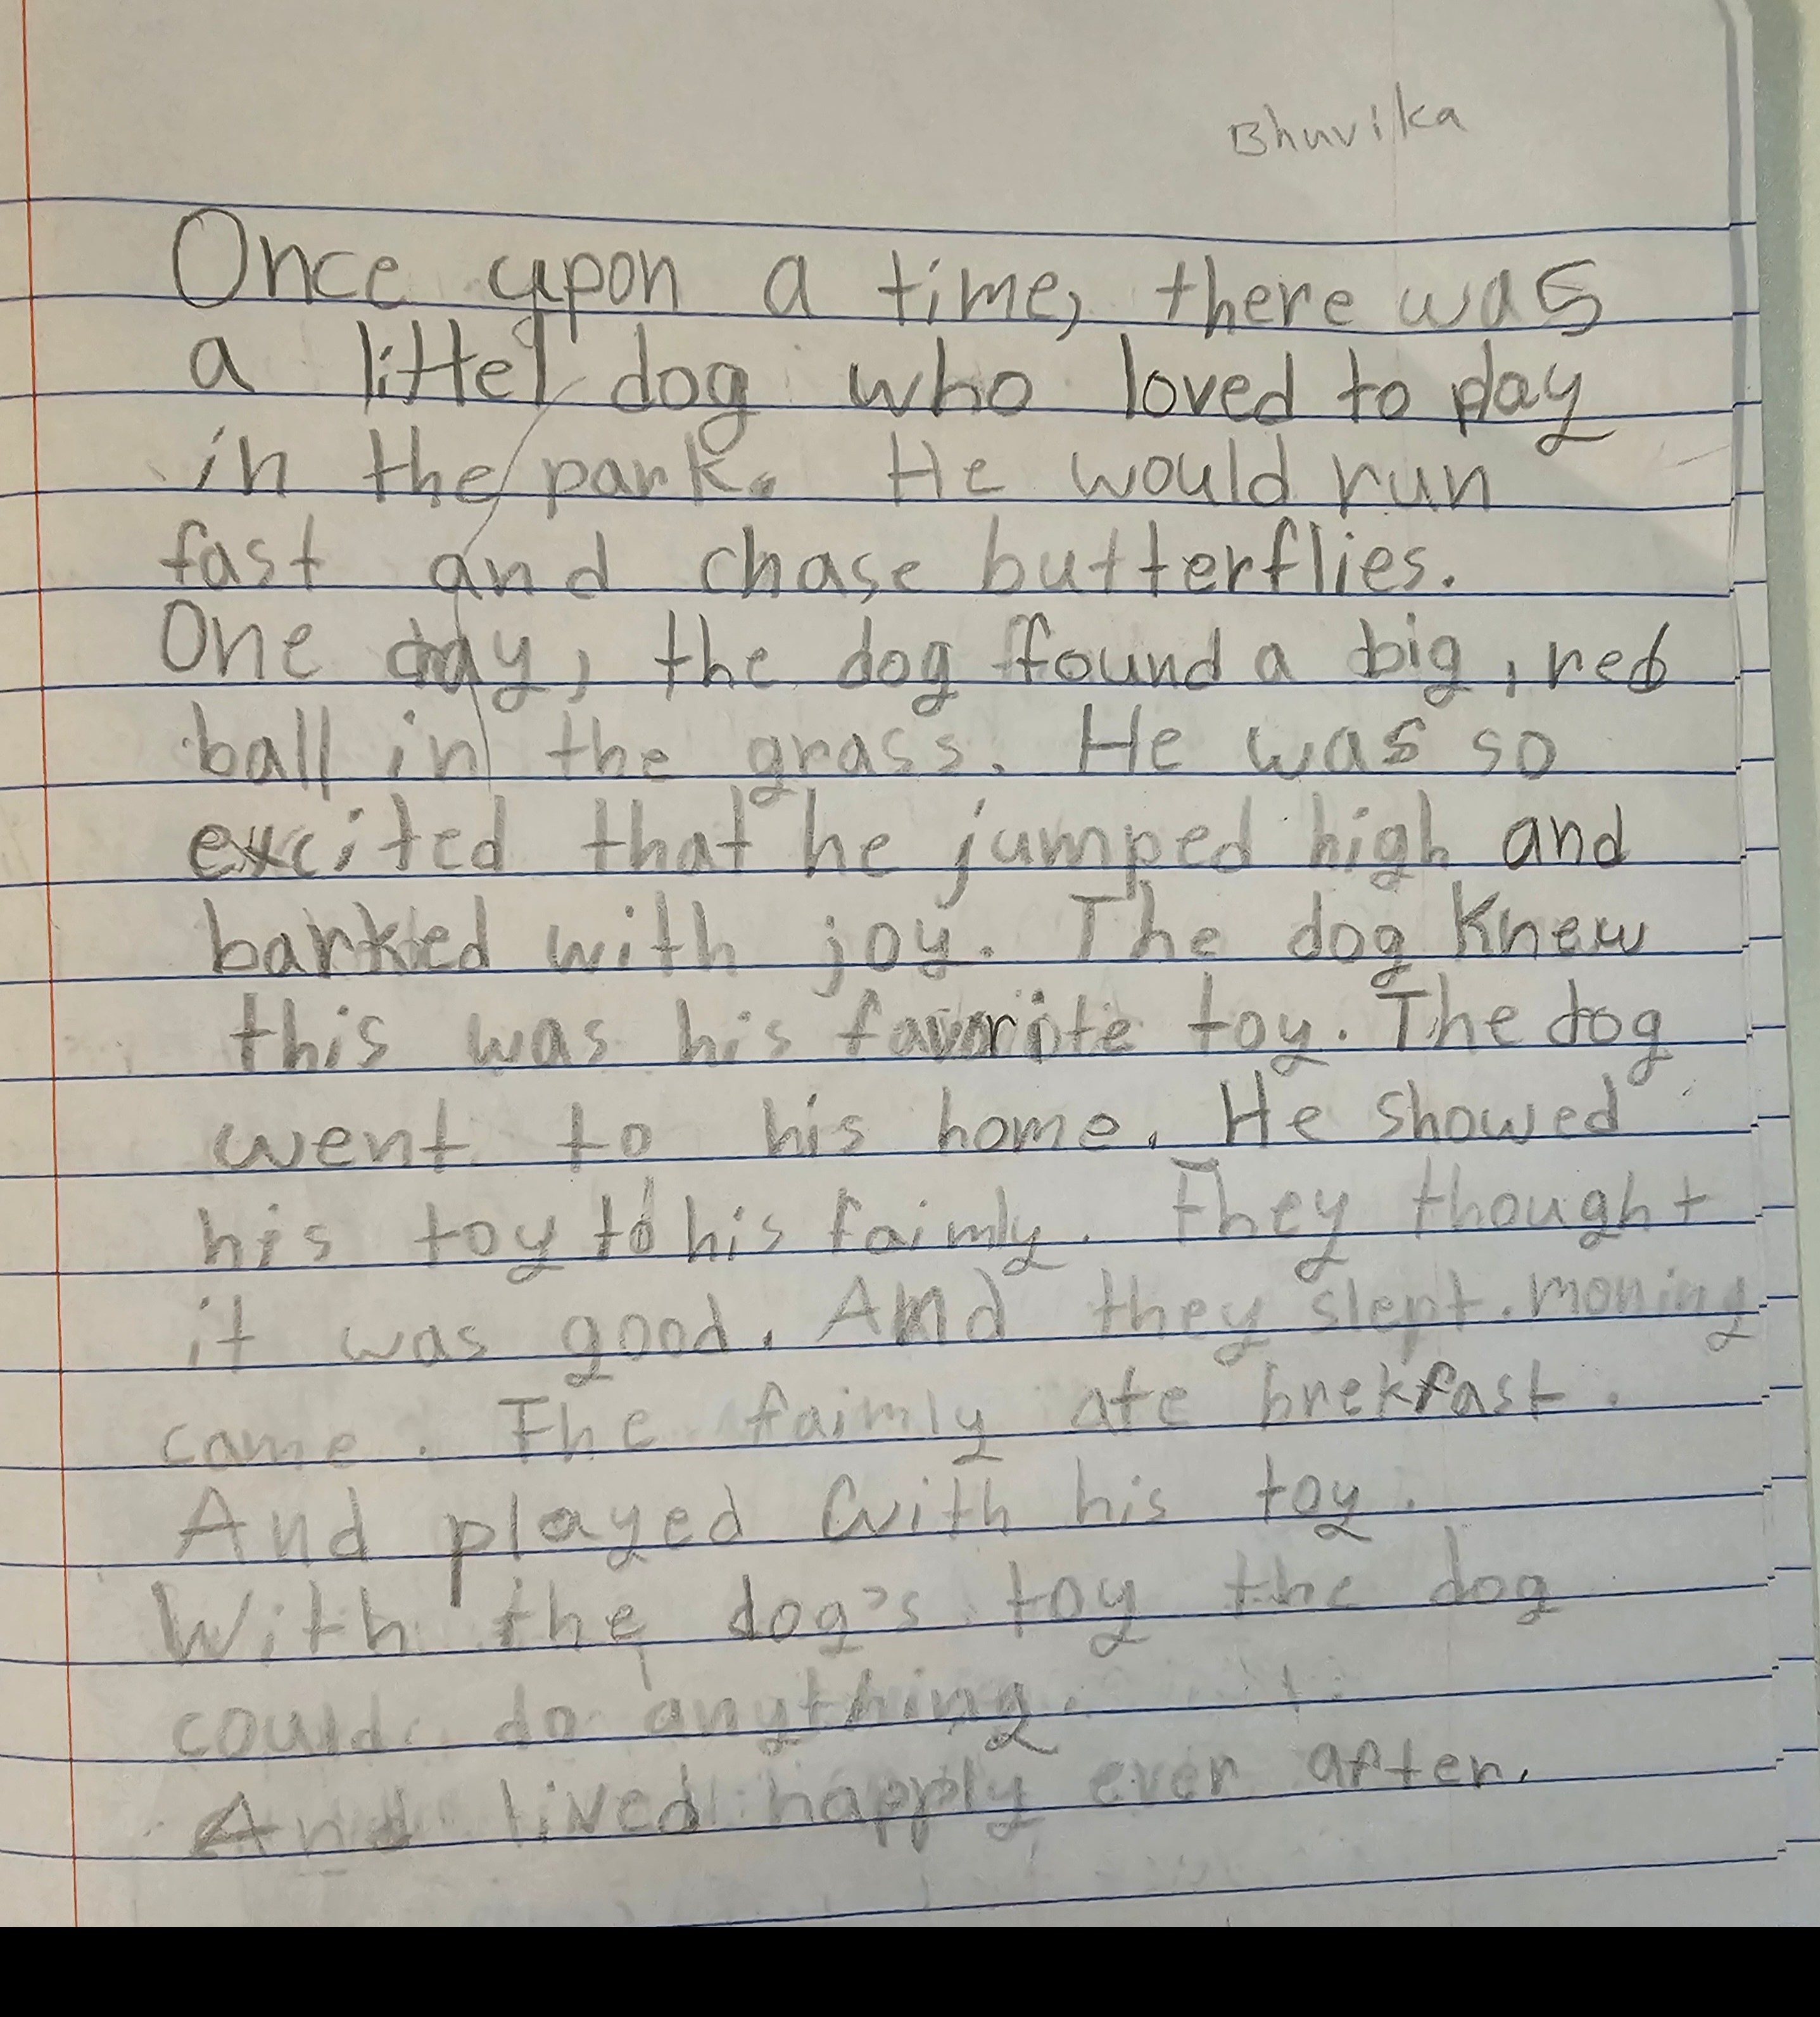 Bhuvika
Once upon a time, there was
a littel dog who loved to play
in the park. He would run
fast and chase butterflies.
One day, the dog found a big, red
ball in the grass. He was so
excited that he jumped high and
barked with joy. The dog knew
this was his favorite toy. The dog
went to his home. He showed
his toy to his faimly. They thought
it was good. And they slept. moning
came. The faimly ate brekfast.
And played with his toy.
With the dog's toy the dog
could do anything.
And lived happly ever after.